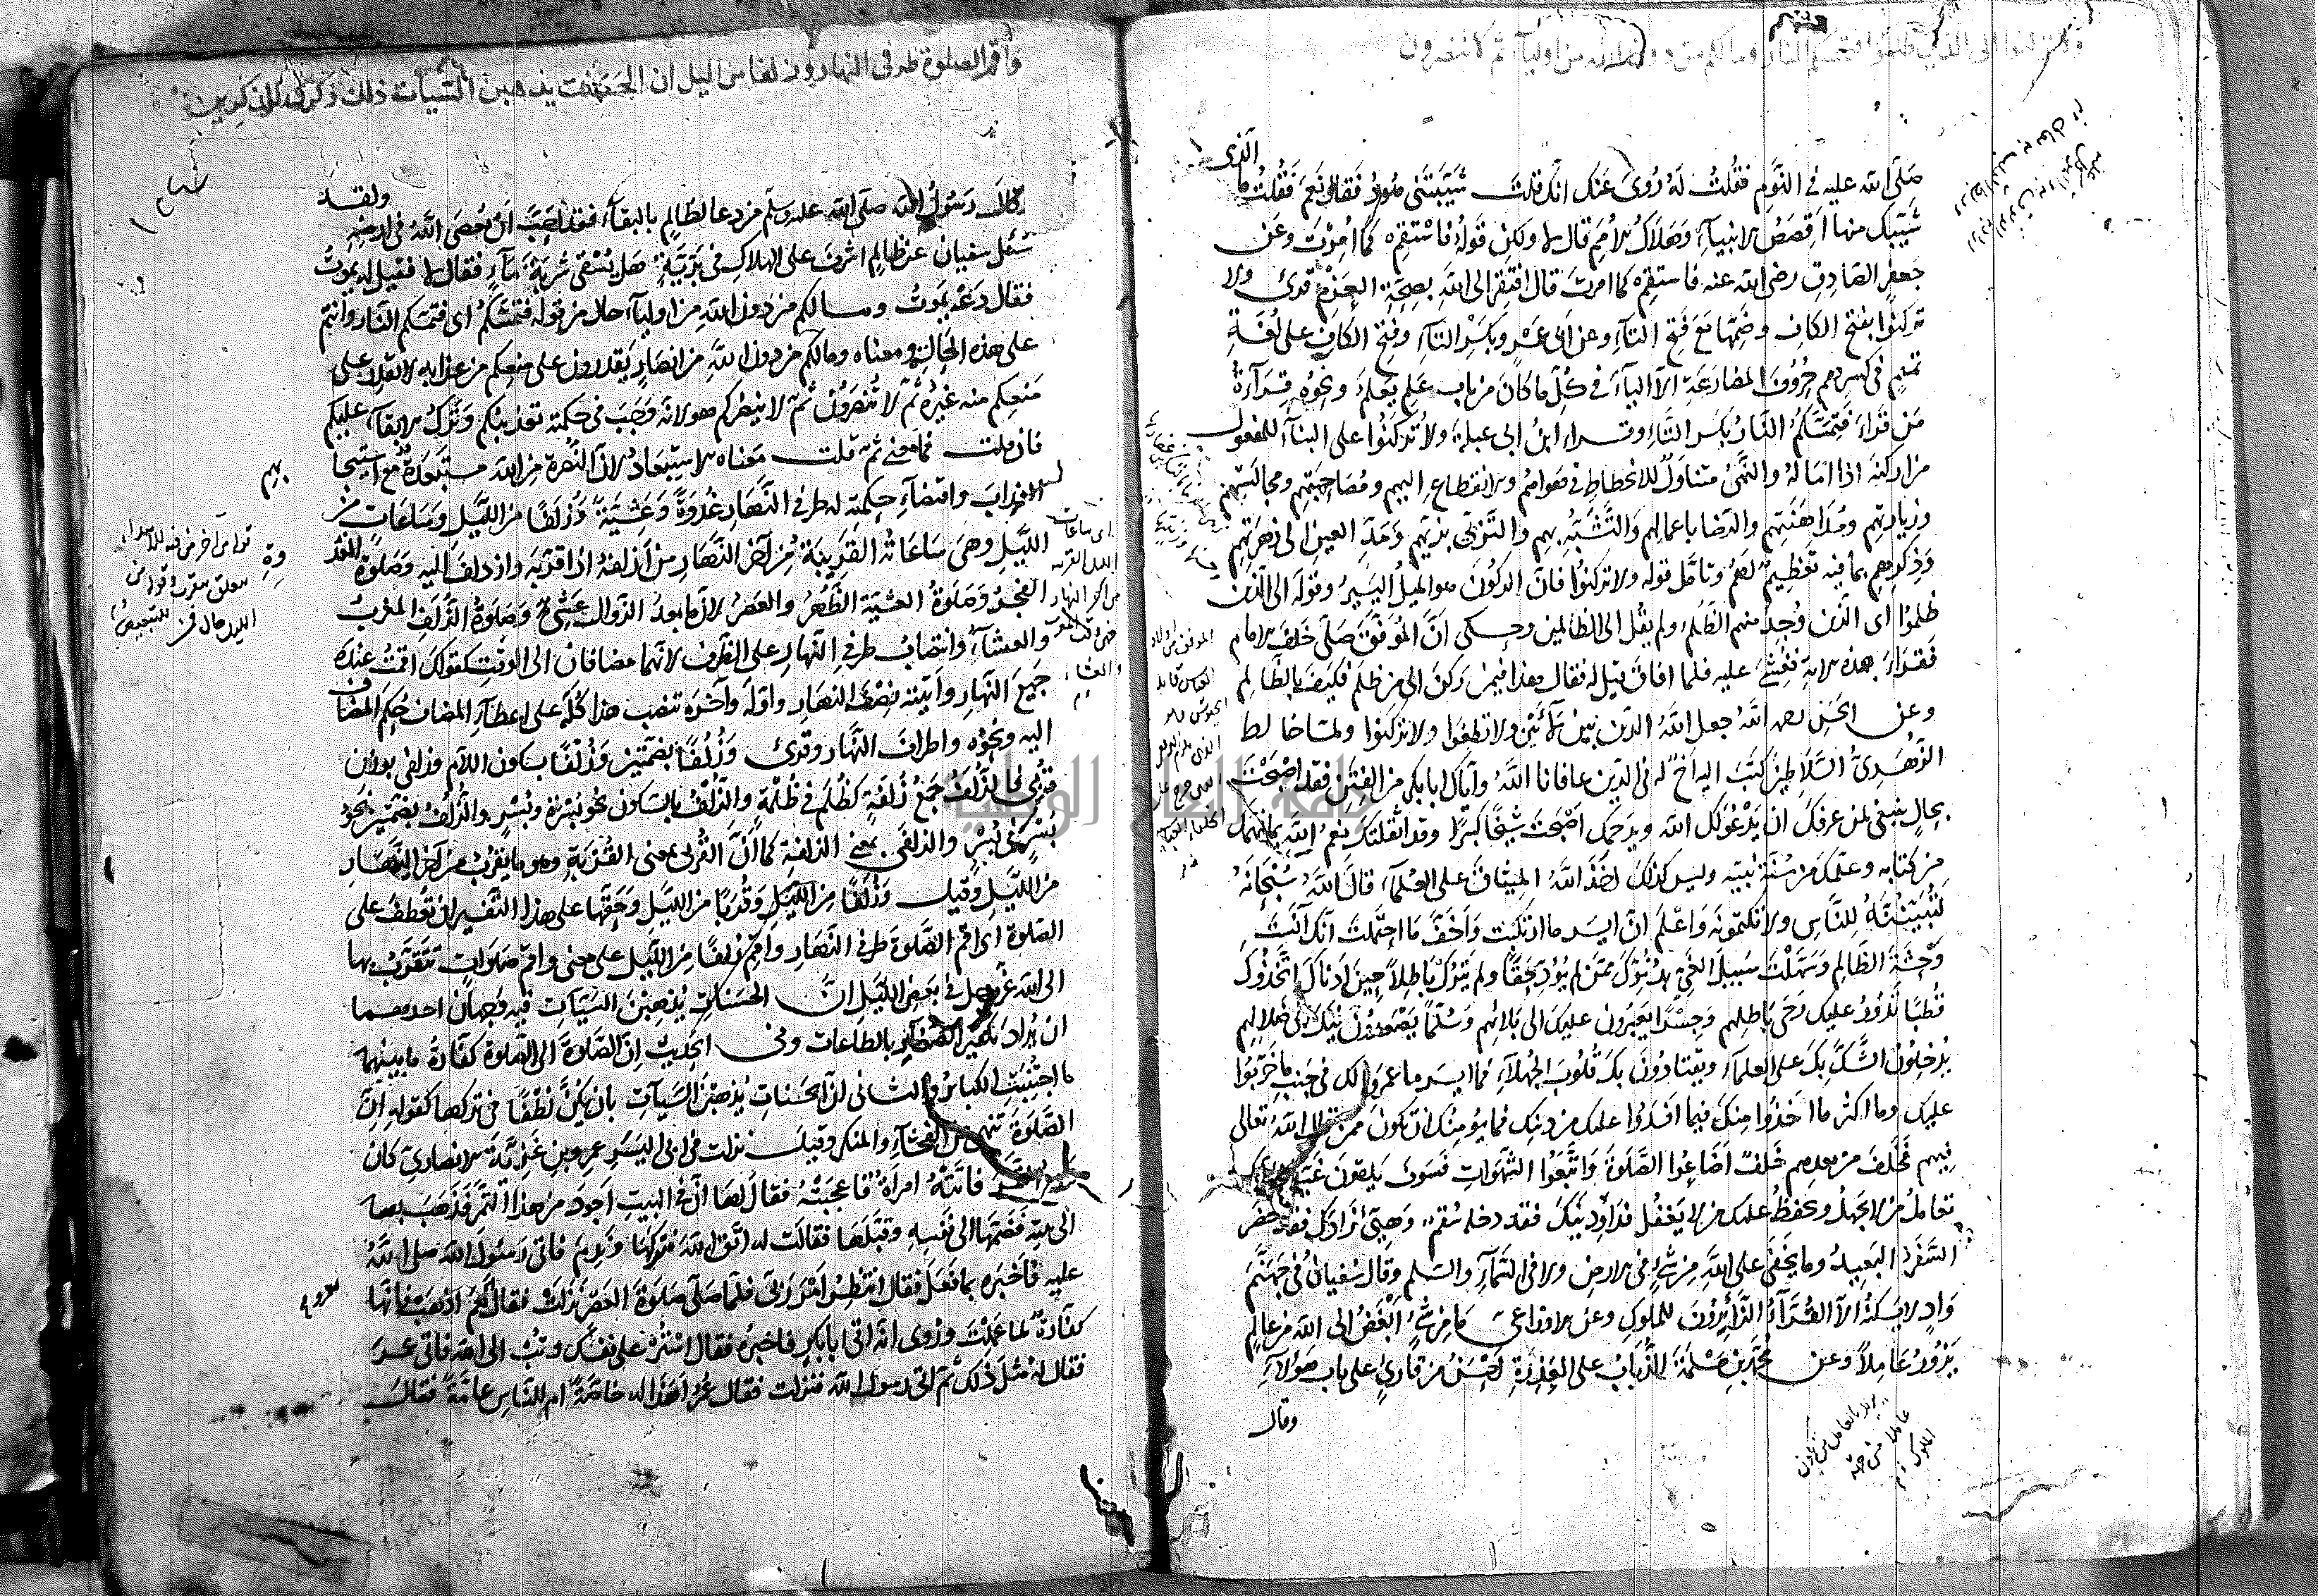 ولا تركنوا الى الذين ظلموا فتمسكم النار وما لكم من دون الله من اولياء ثم لا تنصرون
الذى
صلى الله عليه فى النوم فقلت له روى عنك انك قلت شيبتنى هود فقال نعم فقلت ما
شيبك منها اقصص الانبياء وهلاك الامم قال لا ولكن قوله فاستقم كما امرت وعن
جعفر الصادق رضى الله عنه فاستقم كما امرت قال افتقر الى الله بصحة العزم قرئ ولا
تركنوا بفتح الكاف وضمها مع فتح التاء وعن ابى عمرو بكسر التاء وفتح الكاف على لغة
تميم فى كسرهم حروف المضارعة الا الياء فى كل ما كان من باب علم يعلم ونحوه قراءة
من قراء فتمسكم النار بكسر التاء وقراء ابن ابى عبلة ولا تركنوا على البناء للمفعول
من اركنه اذا اماله والنهى متناول للانحطاط فى هواهم والانقطاع اليهم ومصاحبتهم ومجالستهم
وزيارتهم ومداهنتهم والرضا باعمالهم والتشبه بهم والتزيى بزيهم ومد العين الى زهرتهم
وذكرهم بما فيه تعظيم لهم وتامل قوله ولا تركنوا فان الركون هو الميل اليسير وقوله الى الذين
ظلموا اى الذين وجد منهم الظلم ولم يقل الى الظالمين وحكى ان الموفق صلى خلف الامام
فقراء بهذه الاية فغشى عليه فلما افاق قيل له فقال هذا فيمن ركن الى من ظلم فكيف بالظالم
وعن الحسن رحمه الله جعل الله الدين بين لائين ولا تطغوا ولا تركنوا ولما خالط
الزهرى السلاطين كتب اليه اخ له فى الدين عافانا الله واياك ابا بكر من الفتن فقد اصبحت
بحال ينبغى لمن عرفك ان يدعو لك الله ويرحمك اصبحت شيخا كبيرا وقد اثقلتك نعم الله بما فهمك
من كتابه وعلمك من سنة نبيه وليس كذلك اخذ الله الميثاق على العلماء قال الله سبحانه
لتبيننه للناس ولا تكتمونه واعلم ان ايسر ما ارتكبت واخف ما احتملت انك آنست
وحشة الظالم وسهلت سبيل الغى بدنوك ممن لم يؤد حقا ولم يترك باطلا حين ادناك اتخذوك
قطبا تدور عليك رحى باطلهم وجسرا يعبرون عليك الى بلائهم وسلما يصعدون فيك الى ضلالهم
يدخلون الشك بك على العلماء ويقتادون بك قلوب الجهلاء فما ايسر ما عمروا لك فى جنب ما خربوا
عليك وما اكثر ما اخذوا منك فيما افسدوا عليك من دينك فما يؤمنك ان تكون ممن قال الله تعالى
فيهم فخلف من بعدهم خلف اضاعوا الصلوة واتبعوا الشهوات فسوف يلقون غيا فانك
تعامل من لا يجهل ويحفظ عليك من لا يغفل فداو دينك فقد دخله سقم وهيئ زادك فقد حضر
السفر البعيد وما يخفى على الله من شئ فى الارض ولا فى السماء والسلم وقال سفيان فى جهنم
واد لا يسكنه الا القراء الزائرون للملوك وعن الاوزاعى ما من شئ ابغض الى الله من عالم
يزور عاملا وعن محمد بن مسلمة الذباب على العذرة احسن من قارئ على باب هؤلاء
وقال
واقم الصلوة طرفى النهار وزلفا من اليل ان الحسنات يذهبن السيئات ذلك ذكرى للذاكرين
ولقد
قال رسول الله صلى الله عليه وسلم من دعا لظالم بالبقاء فقد احب ان يعصى الله فى ارضه
سئل سفيان عن ظالم اشرف على الهلاك فى برية هل يسقى شربة ماء فقال لا فقيل له يموت
فقال دعه يموت وما لكم من دون الله من اولياء حال من قوله فتمسكم اى فتمسكم النار وانتم
على هذه الحال ومعناه وما لكم من دون الله من انصار يقدرون على منعكم من عذابه لا يقدر على
منعكم منه غيره ثم لا تنصرون ثم لا ينصركم هو لانه وجب فى حكمته تعذيبكم وترك الابقاء عليكم
فان قلت فما معنى ثم قلت معناه الاستبعاد لان النصرة من الله مستبعدة مع استيجا
بهم
العذاب واقتضاء حكمته له طرفى النهار غدوة وعشية وزلفا من الليل وساعات من
الليل وهى ساعاته القريبة من آخر النهار من ازلفه اذا قربه وازدلف اليه وصلوة الغدوة
الفجر وصلوة العشية الظهر والعصر لان ما بعد الزوال عشى وصلوة الزلف المغرب
والعشاء وانتصاب طرفى النهار على الظرف لانهما مضافان الى الوقت كقولك اقمت عنده
جميع النهار واتيته نصف النهار واوله وآخره تنصب هذا كله على اعطاء المضاف حكم المضاف
اليه ونحوه واطراف النهار وقرئ وزلفا بضمتين وزلفا بسكون اللام وزلفى بوزن
قربى فالزلف جمع زلفة كظلم فى ظلمة والزلف بالسكون نحو بسرة وبسر والزلف بضمتين نحو
بسر فى بسر والزلفى بمعنى الزلفة كما ان القربى بمعنى القربة وهو ما يقرب من آخر النهار
من الليل وقيل وزلفا من الليل وقربا من الليل وحقها على هذا التفسير ان تعطف على
الصلوة اى اقم الصلوة طرفى النهار واقم زلفا من الليل على معنى واقم صلوات تتقرب بها
الى الله عز وجل فى بعض الليل ان الحسنات يذهبن السيئات فيه وجهان احدهما
ان يراد تكفير الصغاير بالطاعات وفى الحديث ان الصلوة الى الصلوة كفارة ما بينهما
ما اجتنبت الكبائر والثانى ان الحسنات يذهبن السيآت بان يكن لطفا فى تركها كقوله ان
الصلوة تنهى عن الفحشاء والمنكر وقيل نزلت فى ابى اليسر عمرو بن غزية الانصارى كان
يبيع التمر فاتته امراة فاعجبته فقال لها ان فى البيت اجود من هذا التمر فذهب بها
الى بيته فضمها الى نفسه وقبلها فقالت له اتق الله فتركها وندم فاتى رسول الله صلى الله
عليه فاخبره بما فعل فقال انتظر امر ربى فلما صلى صلوة العصر نزلت فقال نعم اذهب فانها
كفارة لما عملت وروى انه اتى ابا بكر فاخبره فقال استر على نفسك وتب الى الله فاتى عمر
فقال له مثل ذلك ثم اتى رسول الله فنزلت فقال عمر اهذا له خاصة ام للناس عامة فقال